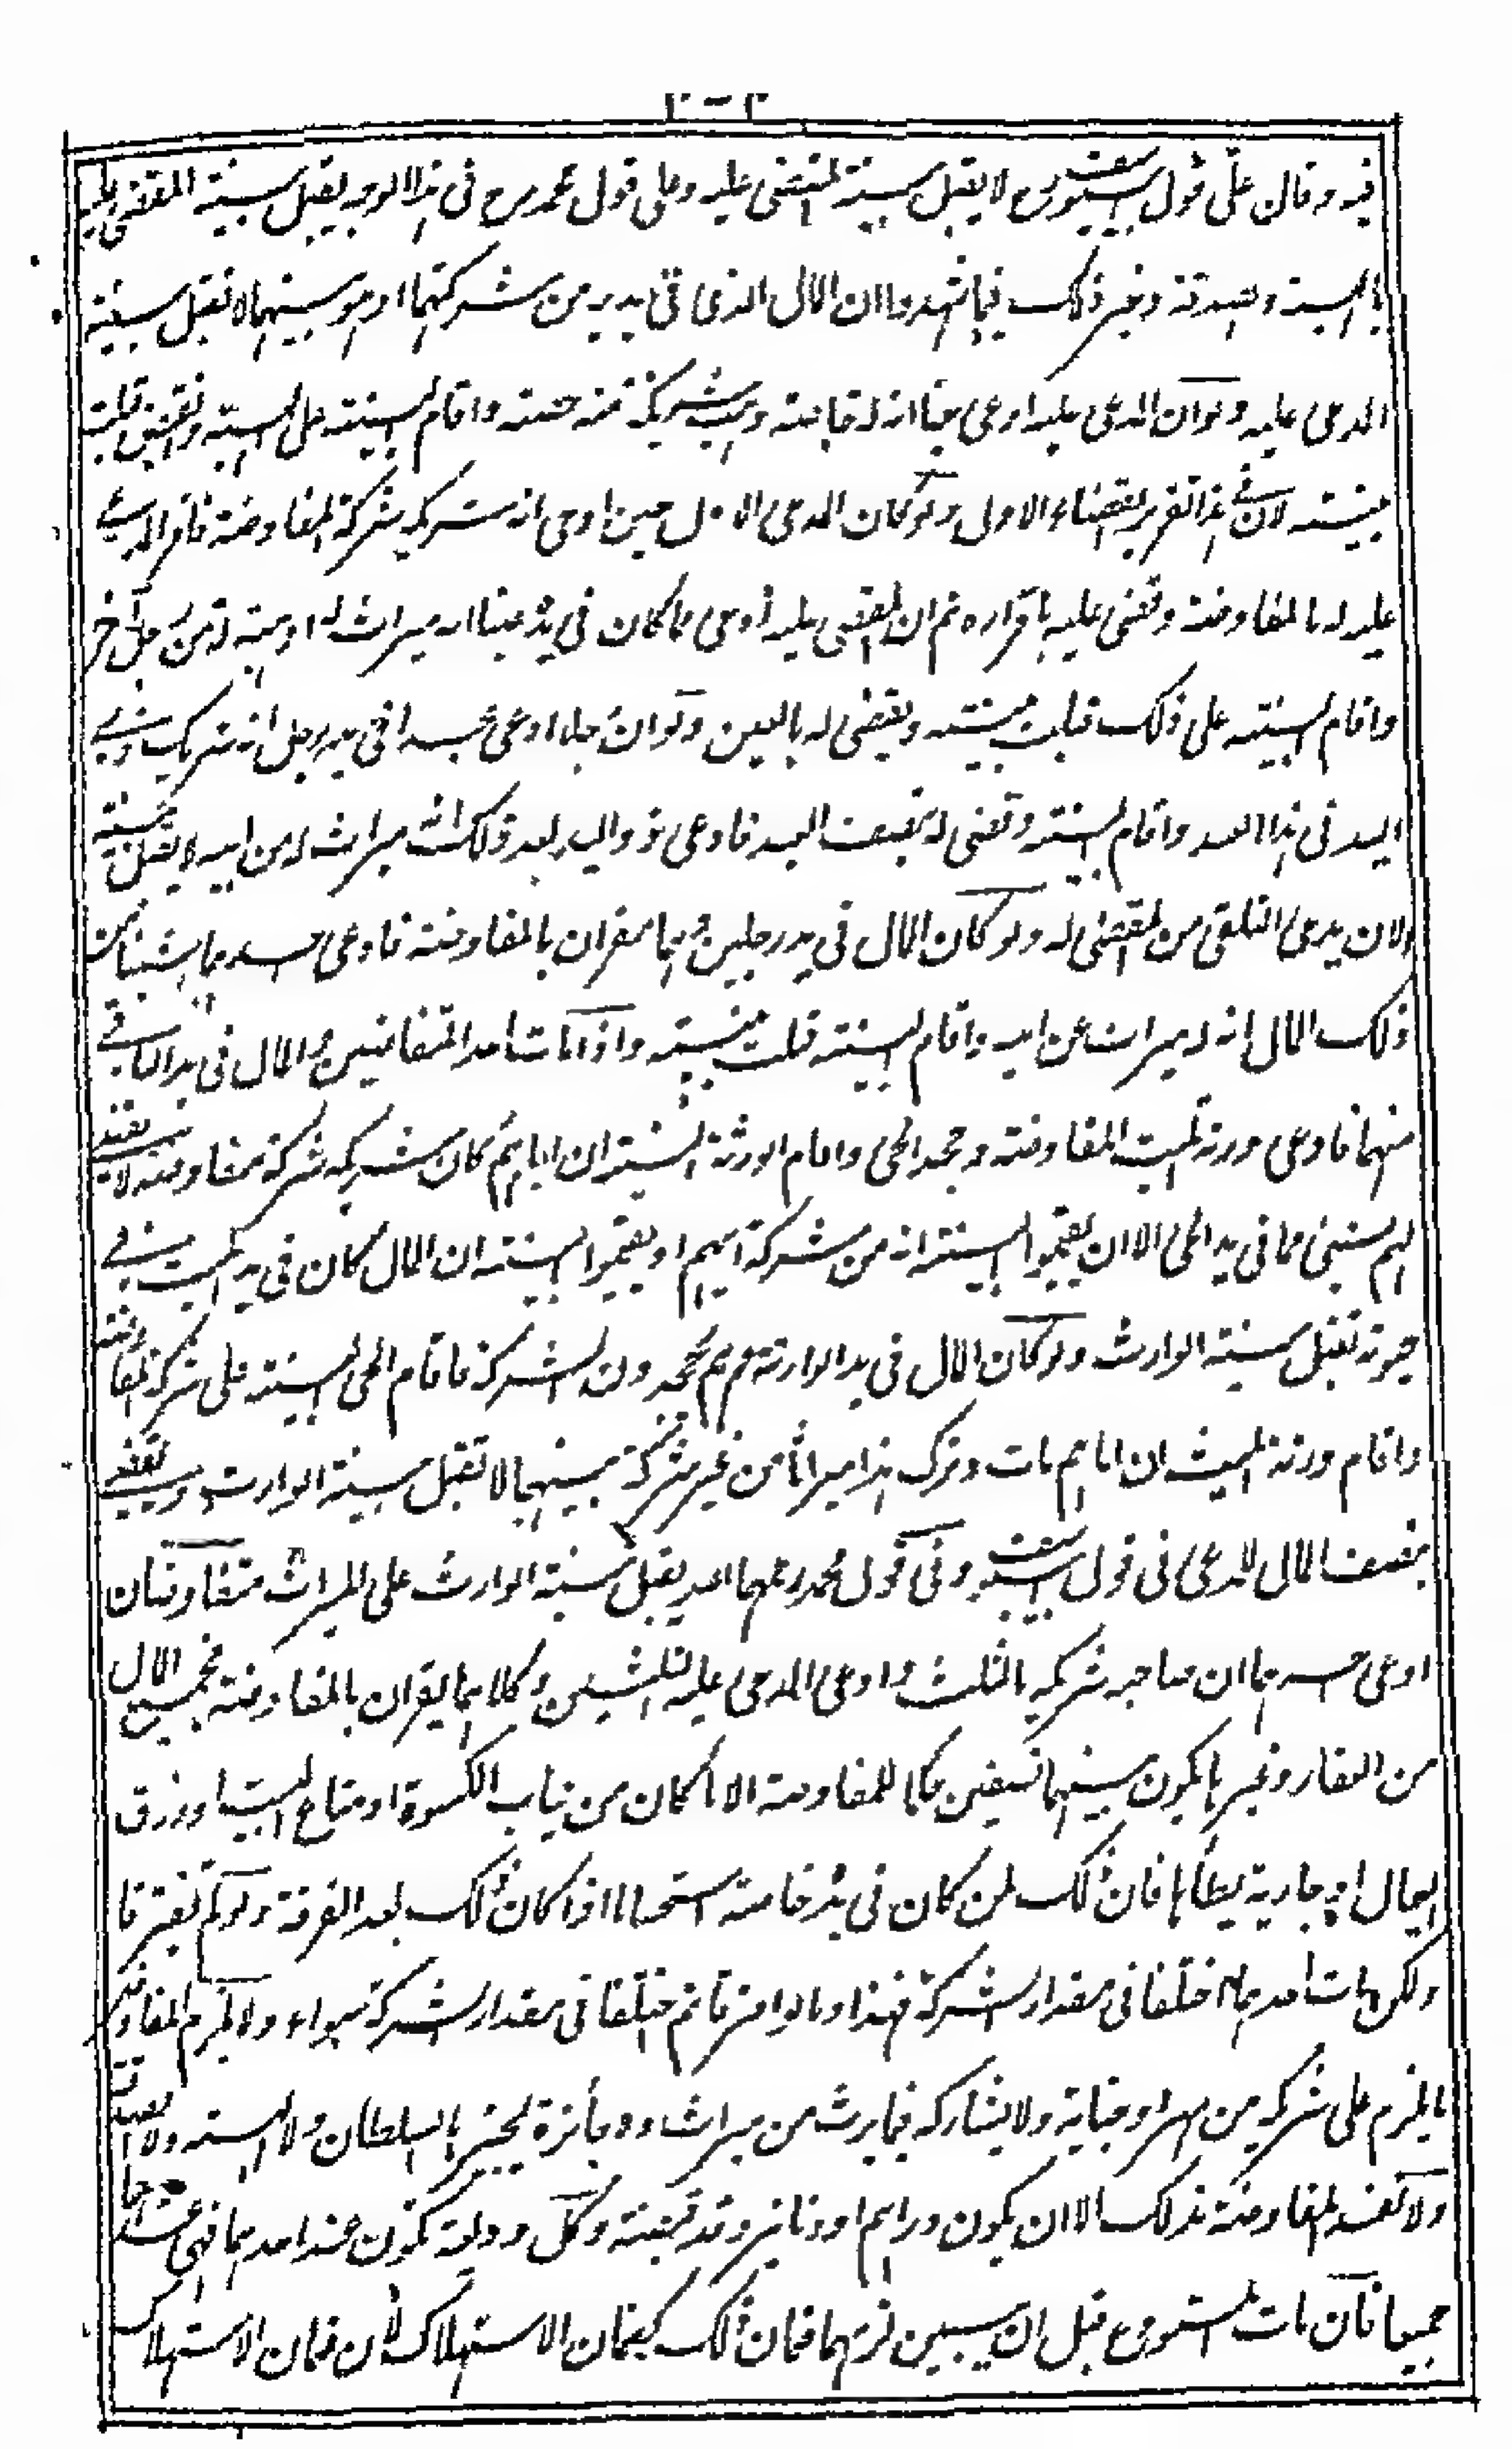 فيه وقال على قول ابي يوسف رح لا يقبل بينة المقضى عليه وعلى قول محمد رح فى هذا الوجه يقبل بينة المقضى عليه
بالهبة والصدقة وغير ذلك فيما شهدوا ان المال الذى فى يديه من شركتهما او هو بينهما لا تقبل بينة
المدعى عليه ولو ان المدعى عليه ادعى عينا انه له خاصة وهب شريكه منه حصته واقام البينة على الهبة والقبض قبلت
بينته لان فى هذا تقرير القضاء الاول ولو كان المدعى الاول حين ادعى انه شريكه شركة المفاوضة فاقر المدعى
عليه له بالمفاوضة وقضى عليه باقراره ثم ان المقضى عليه ادعى مما كان فى يده عينا انه ميراث له او هبة له من رجل آخر
واقام البينة على ذلك قبلت بينته ويقضى له بالعين ولو ان رجلا ادعى عبدا فى يد رجل انه شريك ذى
اليد فى هذا العبد واقام البينة وقضى له بنصف العبد فادعى ذو اليد بعد ذلك انه ميراث له من ابيه لا يقبل بينته
الا ان يدعى التلقى من المقضى له ولو كان المال فى يد رجلين وهما مقران بالمفاوضة فادعى احدهما شيئا من
ذلك المال انه له ميراث عن ابيه واقام البينة قبلت بينته واذا مات احد المتفاوضين والمال فى يد الباقى
منهما فادعى ورثة الميت المفاوضة وجحد الحى واقام الورثة البينة ان اباهم كان شريكه شركة مفاوضة لا يقضى
لهم بشئ مما فى يد الحى الا ان يقيموا البينة انه من شركة ابيهم او يقيموا البينة ان المال كان فى يد الميت فى
حيوته تقبل بينة الوارث ولو كان المال فى يد الوارثة وهم يجحدون الشركة فاقام الحى البينة على شركة المفاوضة
واقام ورثة الميت ان اباهم مات وترك هذا ميراثا من غير شركة بينهما لا تقبل بينة الوارث ويقضى
بنصف المال للمدعى فى قول ابي يوسف وفى قول محمد رحمهما الله يقبل بينة الوارث على الميراث متفاوضان
ادعى احدهما ان صاحبه شريكه بالثلث وادعى المدعى عليه الثلثين وكلاهما يقران بالمفاوضة فجميع المال
من العقار وغيرها يكون بينهما نصفين حكما للمفاوضة الا ما كان من ثياب الكسوة او متاع البيت او رزق
العيال او جارية يطأها فان ذلك لمن كان فى يده خاصة استحسانا اذا كان ذلك بعد الفرقة ولو لم يفترقا
ولكن مات احدهما ثم اختلفا فى مقدار الشركة فهذا وما لو افترقا ثم اختلفا فى مقدار الشركة سواء ولا يلزم المفاوض
ما يلزم على شريكه من مهر او جناية ولا يشاركه فيما يرث من ميراث ولا جائزة يجيزها السلطان ولا الهبة ولا الصدقة
ولا تفسد المفاوضة بذلك الا ان يكون دراهم او دنانير وقد قبضته وكل وديعة تكون عند احدهما فهى عندهما
جميعا فان مات المستودع قبل ان يبين لزمهما ضمان ذلك كضمان الاستهلاك لان ضمان الاستهلاك